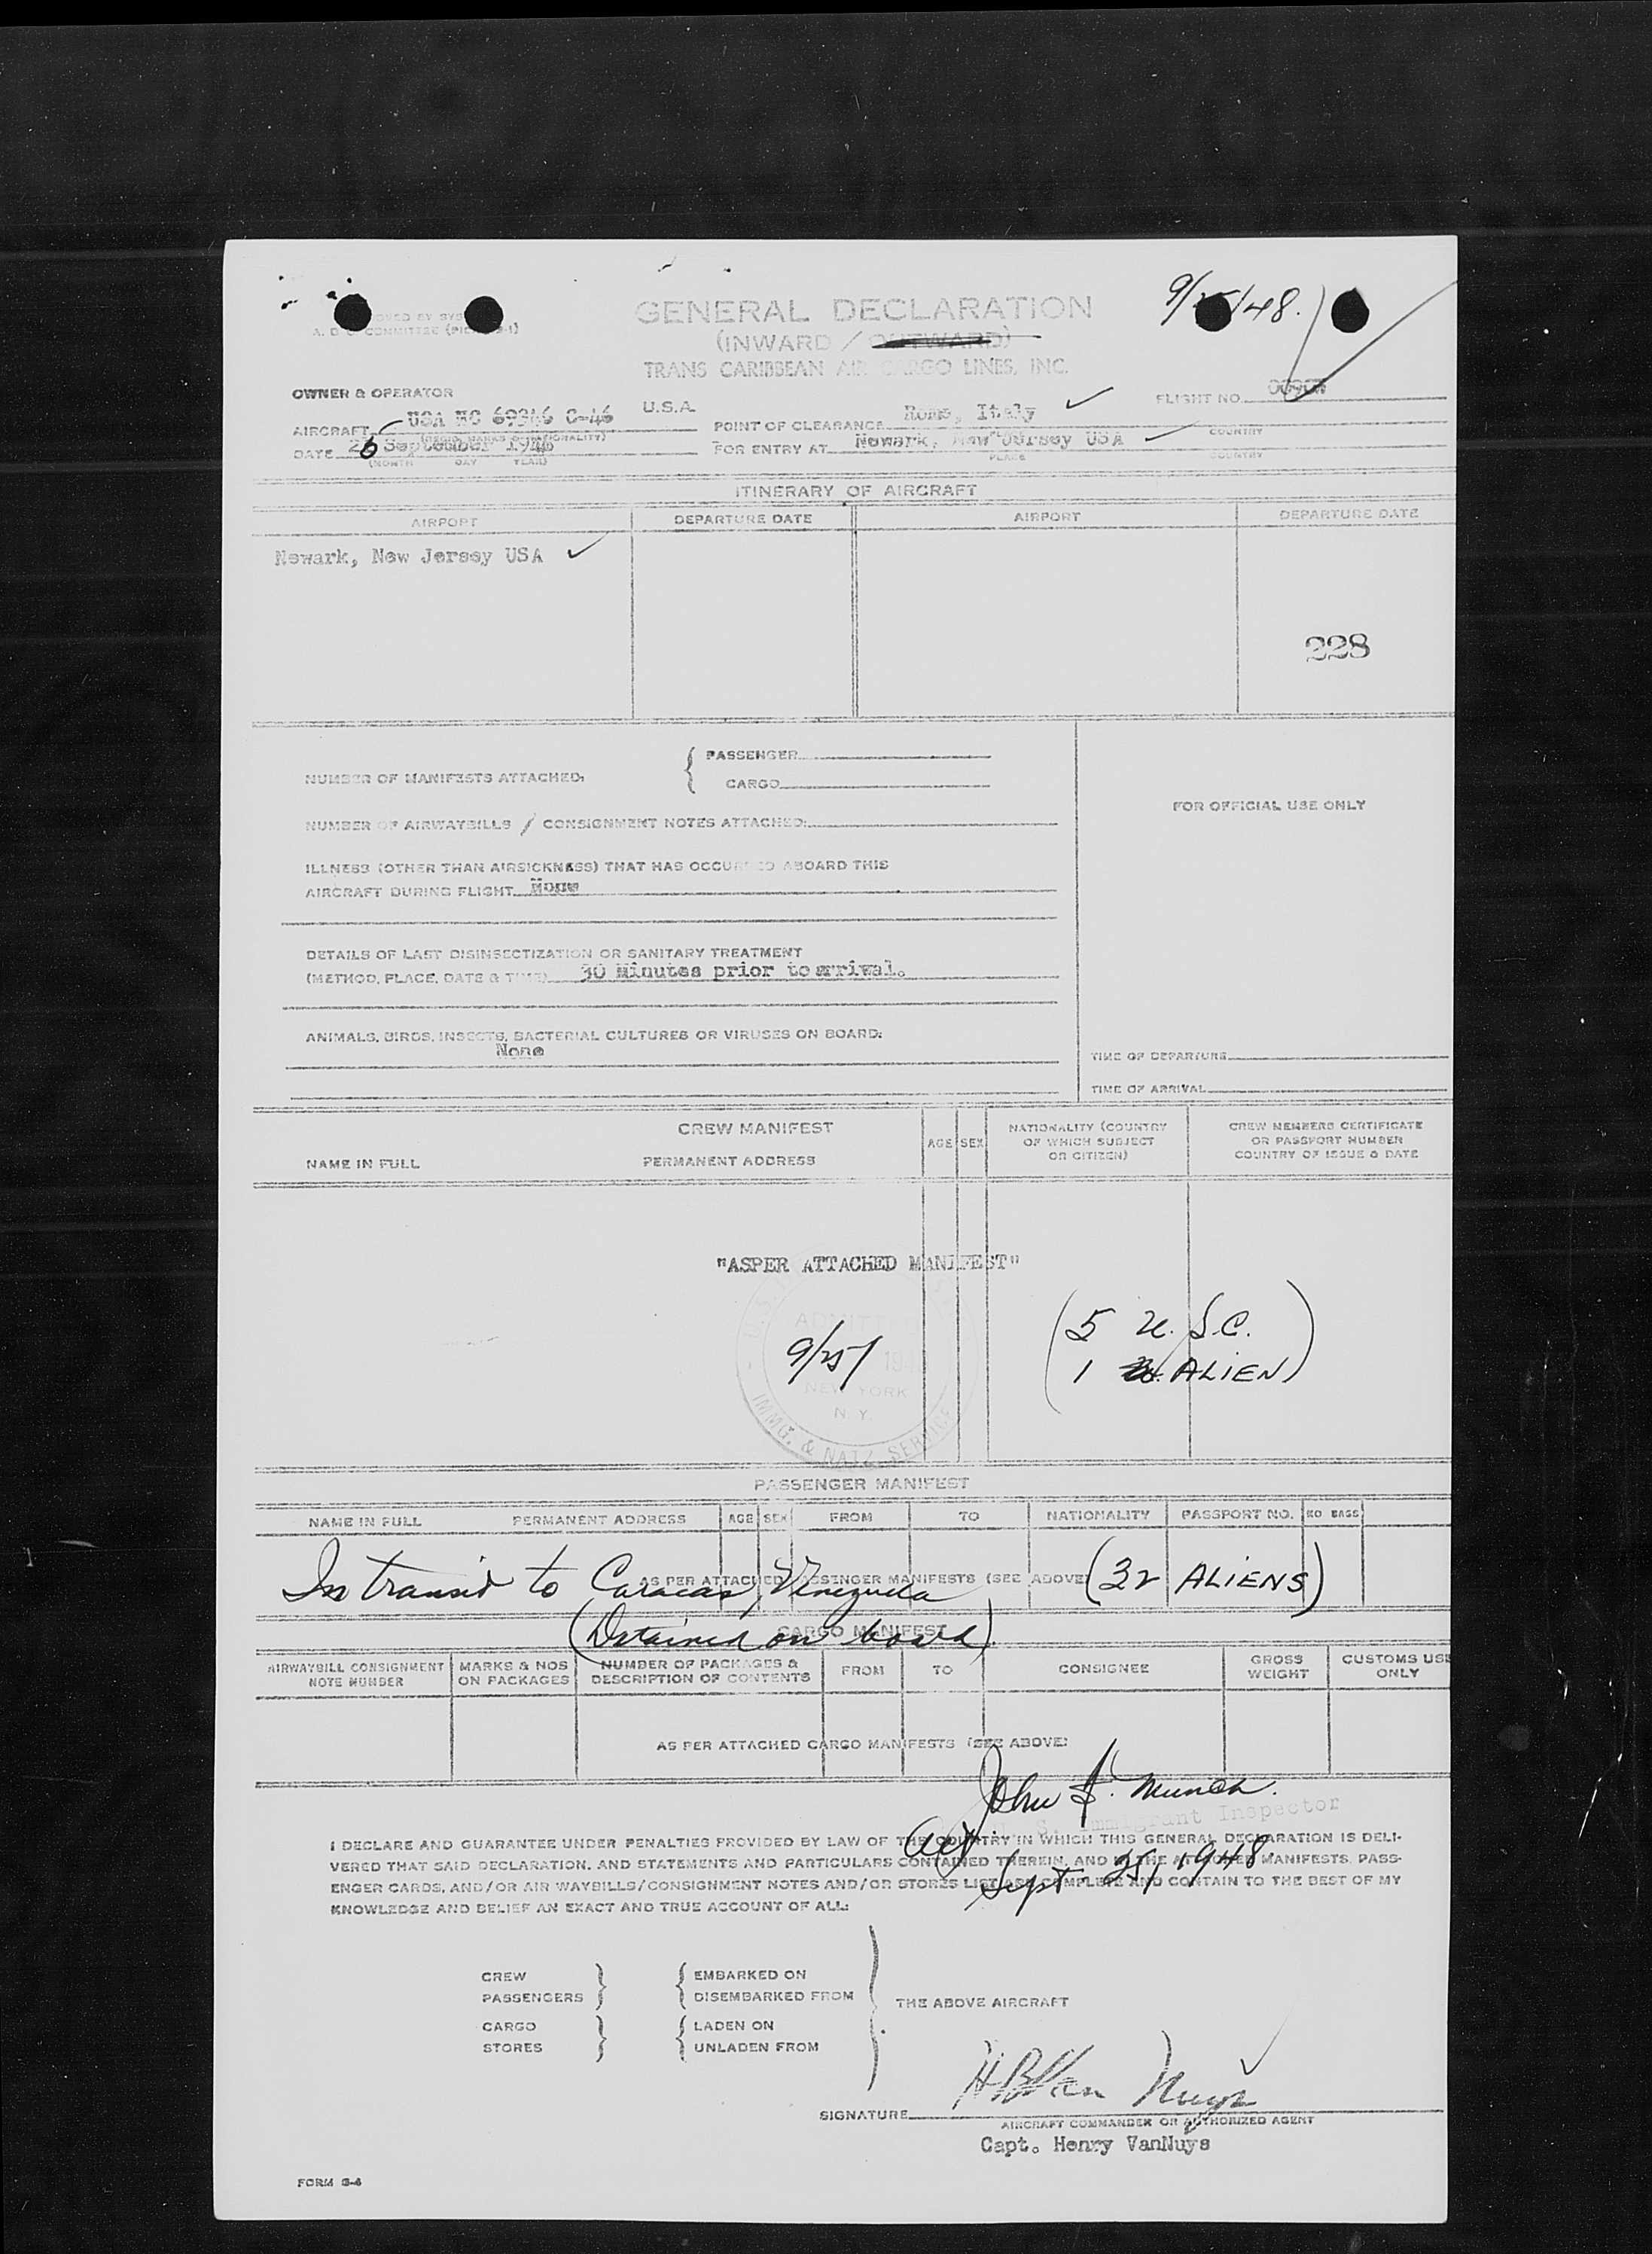 GENERAL DECLARATION
9/25/48.
A. D. C. COMMITTEE
(INWARD / OUTWARD)
TRANS CARIBBEAN AIR CARGO LINES, INC.
OWNER & OPERATOR
U.S.A.
FLIGHT NO.
AIRCRAFT USA NC 69346 C-46
POINT OF CLEARANCE Rome, Italy
COUNTRY
DATE September 1948
FOR ENTRY AT Newark, New Jersey USA
(MONTH DAY YEAR)
PLACE COUNTRY
ITINERARY OF AIRCRAFT
AIRPORT DEPARTURE DATE AIRPORT DEPARTURE DATE
Newark, New Jersey USA
228
PASSENGER
NUMBER OF MANIFESTS ATTACHED:
CARGO
FOR OFFICIAL USE ONLY
NUMBER OF AIRWAYBILLS / CONSIGNMENT NOTES ATTACHED:
ILLNESS (OTHER THAN AIRSICKNESS) THAT HAS OCCURRED ABOARD THIS
AIRCRAFT DURING FLIGHT None
DETAILS OF LAST DISINSECTIZATION OR SANITARY TREATMENT
(METHOD, PLACE, DATE & TIME) 30 Minutes prior to arrival.
ANIMALS, BIRDS, INSECTS, BACTERIAL CULTURES OR VIRUSES ON BOARD:
None
TIME OF DEPARTURE
TIME OF ARRIVAL
CREW MANIFEST
NAME IN FULL PERMANENT ADDRESS AGE SEX
NATIONALITY (COUNTRY
OF WHICH SUBJECT
OR CITIZEN)
CREW MEMBERS CERTIFICATE
OR PASSPORT NUMBER
COUNTRY OF ISSUE & DATE
"ASPER ATTACHED MANIFEST"
ADMITTED
9/25/
NEW YORK
N. Y.
IMMG. & NATZ. SERVICE
(5 U.S.C.
1 ALIEN)
PASSENGER MANIFEST
NAME IN FULL PERMANENT ADDRESS AGE SEX FROM TO NATIONALITY PASSPORT NO. KG BAGS
AS PER ATTACHED PASSENGER MANIFESTS (SEE ABOVE)
In transit to Caracas, Venezuela (32 ALIENS)
(Detained on board).
CARGO MANIFEST
AIRWAYBILL CONSIGNMENT
NOTE NUMBER
MARKS & NOS
ON PACKAGES
NUMBER OF PACKAGES &
DESCRIPTION OF CONTENTS
FROM TO CONSIGNEE
GROSS
WEIGHT
CUSTOMS USE
ONLY
AS PER ATTACHED CARGO MANIFESTS (SEE ABOVE)
John S. Munch.
Immigrant Inspector
Sept. 25, 1948.
I DECLARE AND GUARANTEE UNDER PENALTIES PROVIDED BY LAW OF THE COUNTRY IN WHICH THIS GENERAL DECLARATION IS DELI-
VERED THAT SAID DECLARATION, AND STATEMENTS AND PARTICULARS CONTAINED THEREIN, AND IN THE ATTACHED MANIFESTS, PASS-
ENGER CARDS, AND/OR AIR WAYBILLS/CONSIGNMENT NOTES AND/OR STORES LIST ARE COMPLETE AND CONTAIN TO THE BEST OF MY
KNOWLEDGE AND BELIEF AN EXACT AND TRUE ACCOUNT OF ALL:
CREW EMBARKED ON
PASSENGERS DISEMBARKED FROM
THE ABOVE AIRCRAFT
CARGO LADEN ON
STORES UNLADEN FROM
H.B. Van Nuys
SIGNATURE
AIRCRAFT COMMANDER OR AUTHORIZED AGENT
Capt. Henry VanNuys
FORM G-4